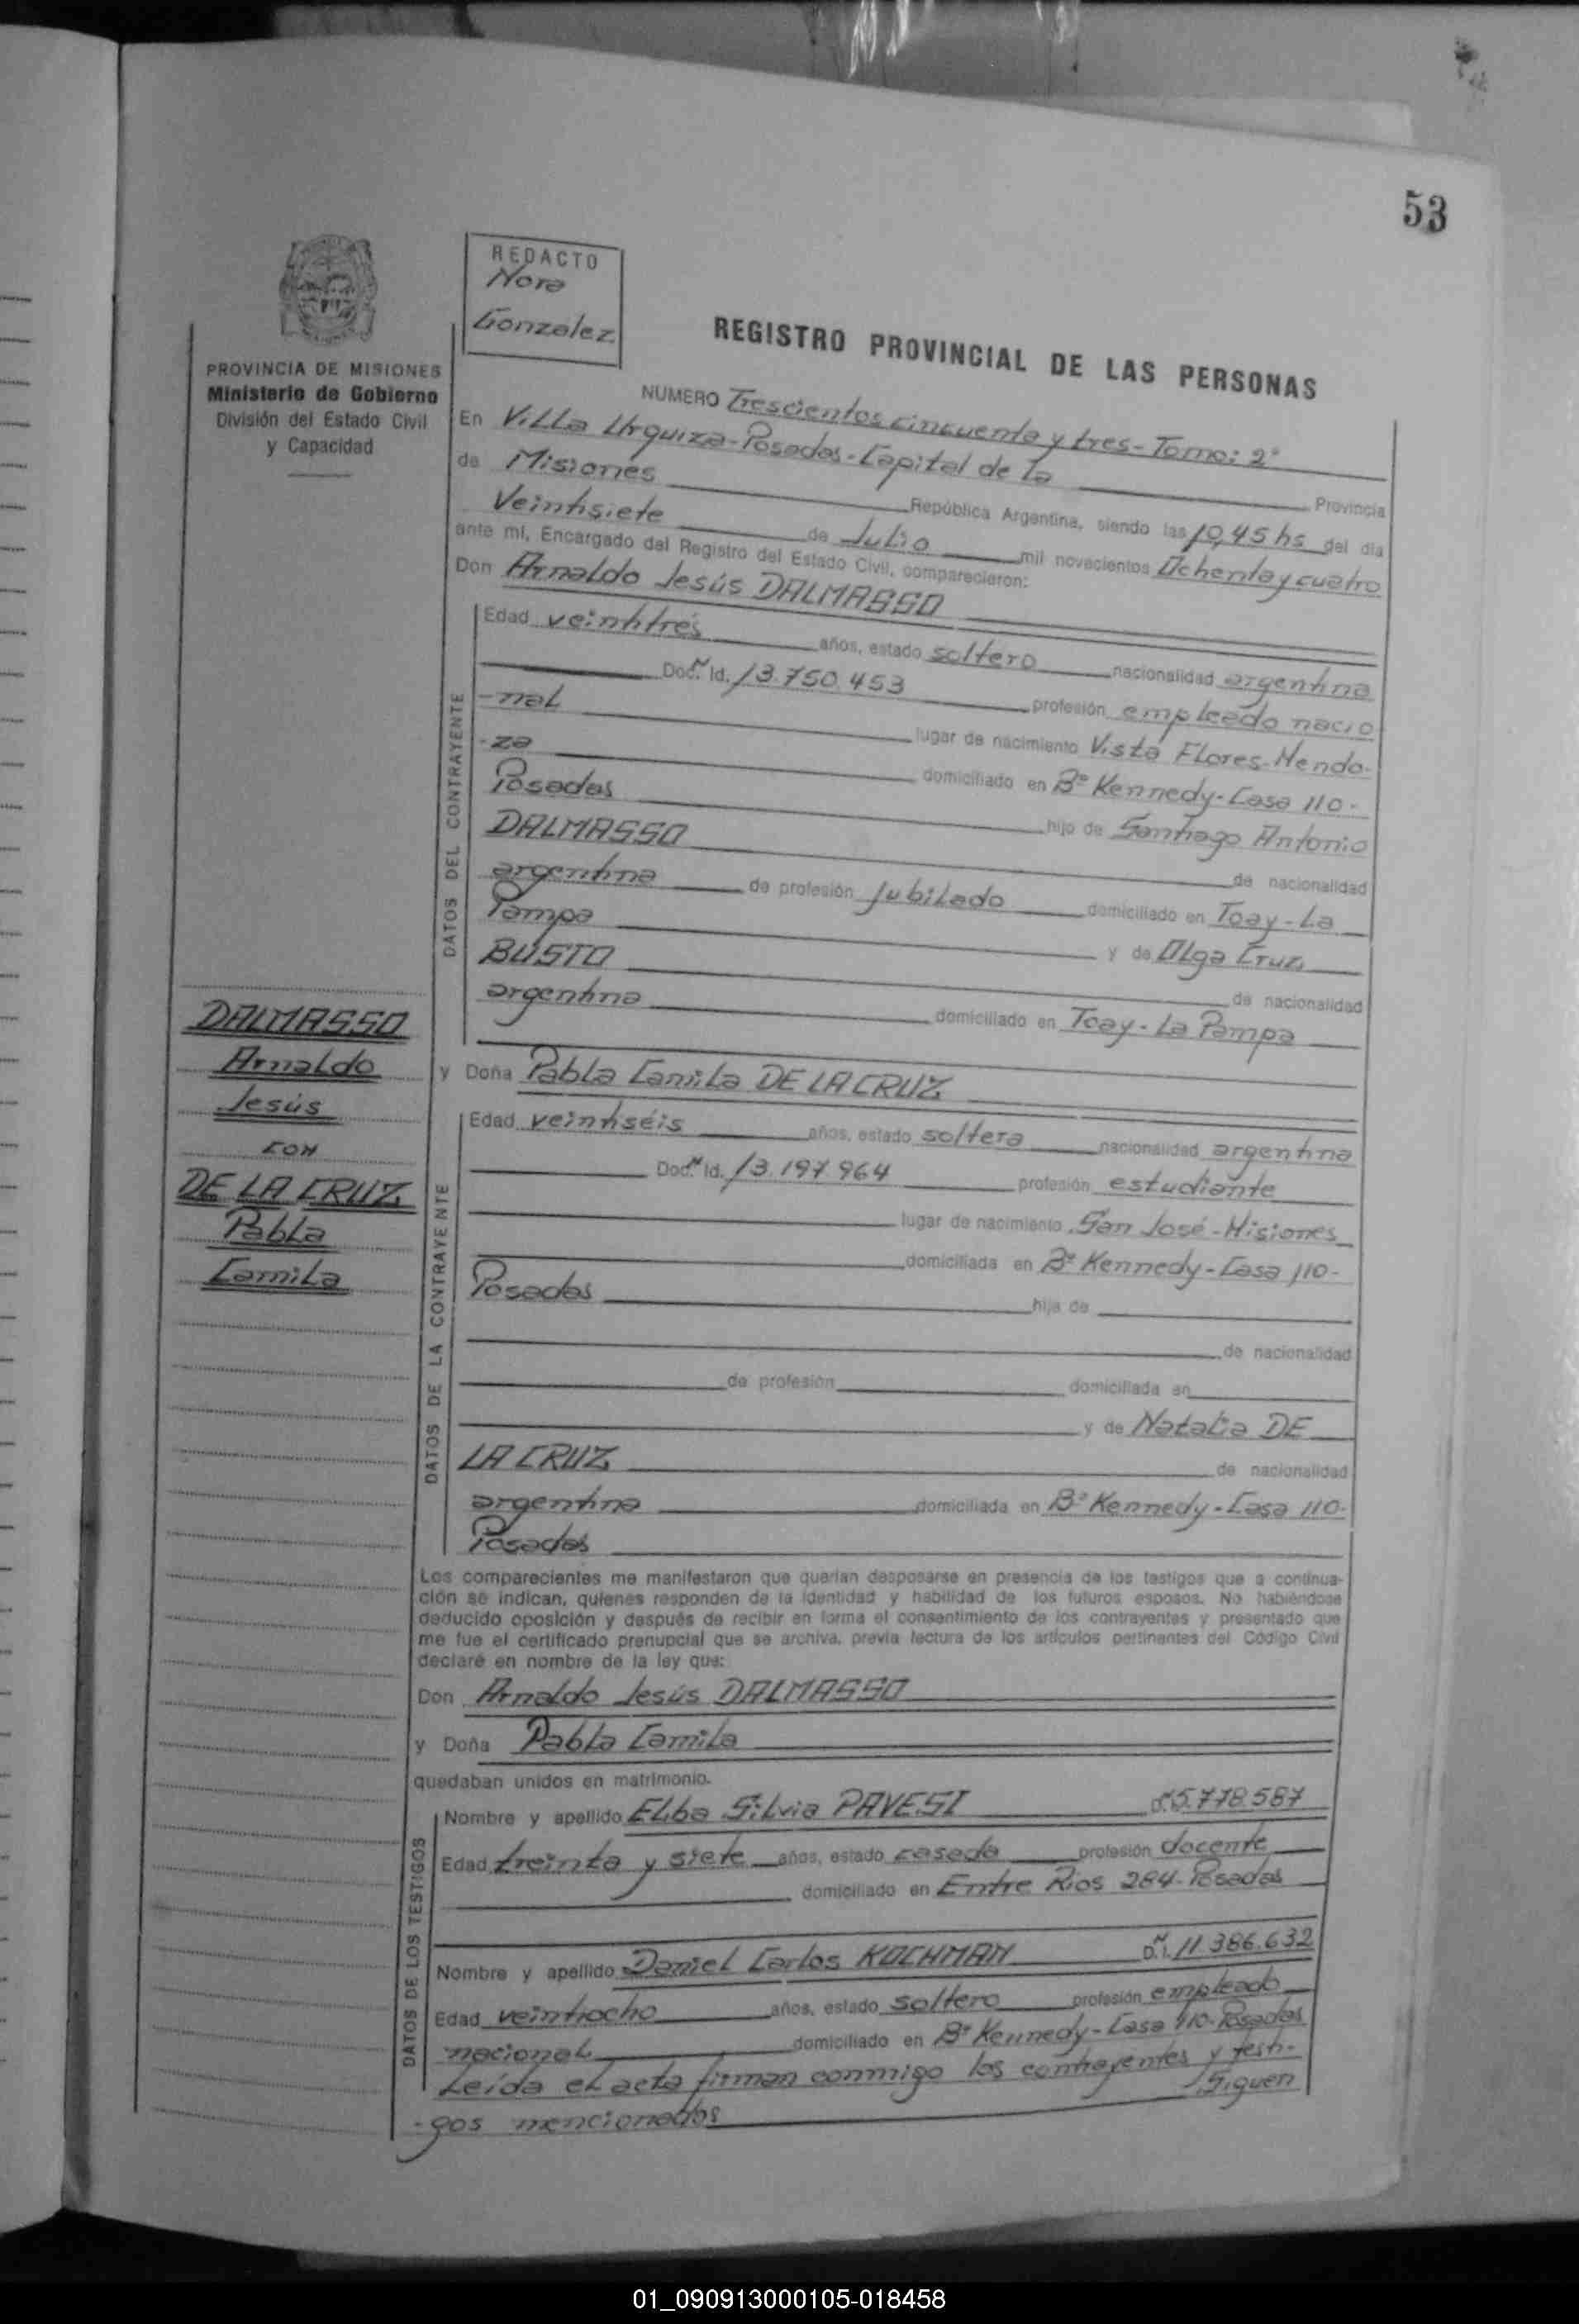 53
REDACTO
Nora
Gonzalez
REGISTRO PROVINCIAL DE LAS PERSONAS
PROVINCIA DE MISIONES
Ministerio de Gobierno
División del Estado Civil
y Capacidad
NUMERO Trescientos cincuenta y tres - Tomo: 2°
En Villa Urquiza - Posadas - Capital de la Provincia
de Misiones República Argentina, siendo las 10,45 hs del día
Veintisiete de Julio mil novecientos Ochenta y cuatro
ante mí, Encargado del Registro del Estado Civil, comparecieron:
Don Arnaldo Jesús DALMASSO
DATOS DEL CONTRAYENTE
Edad veintitrés años, estado soltero nacionalidad argentina
Doc. N Id. 13.750.453 profesión empleado nacio
-nal lugar de nacimiento Vista Flores - Mendo-
-za domiciliado en B° Kennedy - Casa 110 -
Posadas hijo de Santiago Antonio
DALMASSO de nacionalidad
argentina de profesión Jubilado domiciliado en Toay - La
Pampa y de Olga Cruz
BUSTO de nacionalidad
argentina domiciliado en Toay - La Pampa
DALMASSO
Arnaldo
Jesús
CON
DE LA CRUZ
Pabla
Camila
y Doña Pabla Camila DE LA CRUZ
DATOS DE LA CONTRAYENTE
Edad veintiséis años, estado soltera nacionalidad argentina
Doc. N Id. 13.197.964 profesión estudiante
lugar de nacimiento San José - Misiones
domiciliada en B° Kennedy - Casa 110 -
Posadas hija de
de nacionalidad
de profesión domiciliada en
y de Natalia DE
LA CRUZ de nacionalidad
argentina domiciliada en B° Kennedy - Casa 110 -
Posadas
Los comparecientes me manifestaron que querían desposarse en presencia de los testigos que a continua-
ción se indican, quienes responden de la identidad y habilidad de los futuros esposos. No habiéndose
deducido oposición y después de recibir en forma el consentimiento de los contrayentes y presentado que
me fue el certificado prenupcial que se archiva, previa lectura de los artículos pertinentes del Código Civil
declaré en nombre de la ley que:
Don Arnaldo Jesús DALMASSO
y Doña Pabla Camila
quedaban unidos en matrimonio.
DATOS DE LOS TESTIGOS
Nombre y apellido Elba Silvia PAVESI 5.778.587
Edad treinta y siete años, estado casada profesión docente
domiciliado en Entre Rios 284 - Posadas
Nombre y apellido Daniel Carlos KOCHMAN D.N.I. 11.386.632
Edad veintiocho años, estado soltero profesión empleado
nacional domiciliado en B° Kennedy - Casa 110 - Posadas
Leída el acta firman conmigo los contrayentes y testi-
-gos mencionados Siguen
01_090913000105-018458